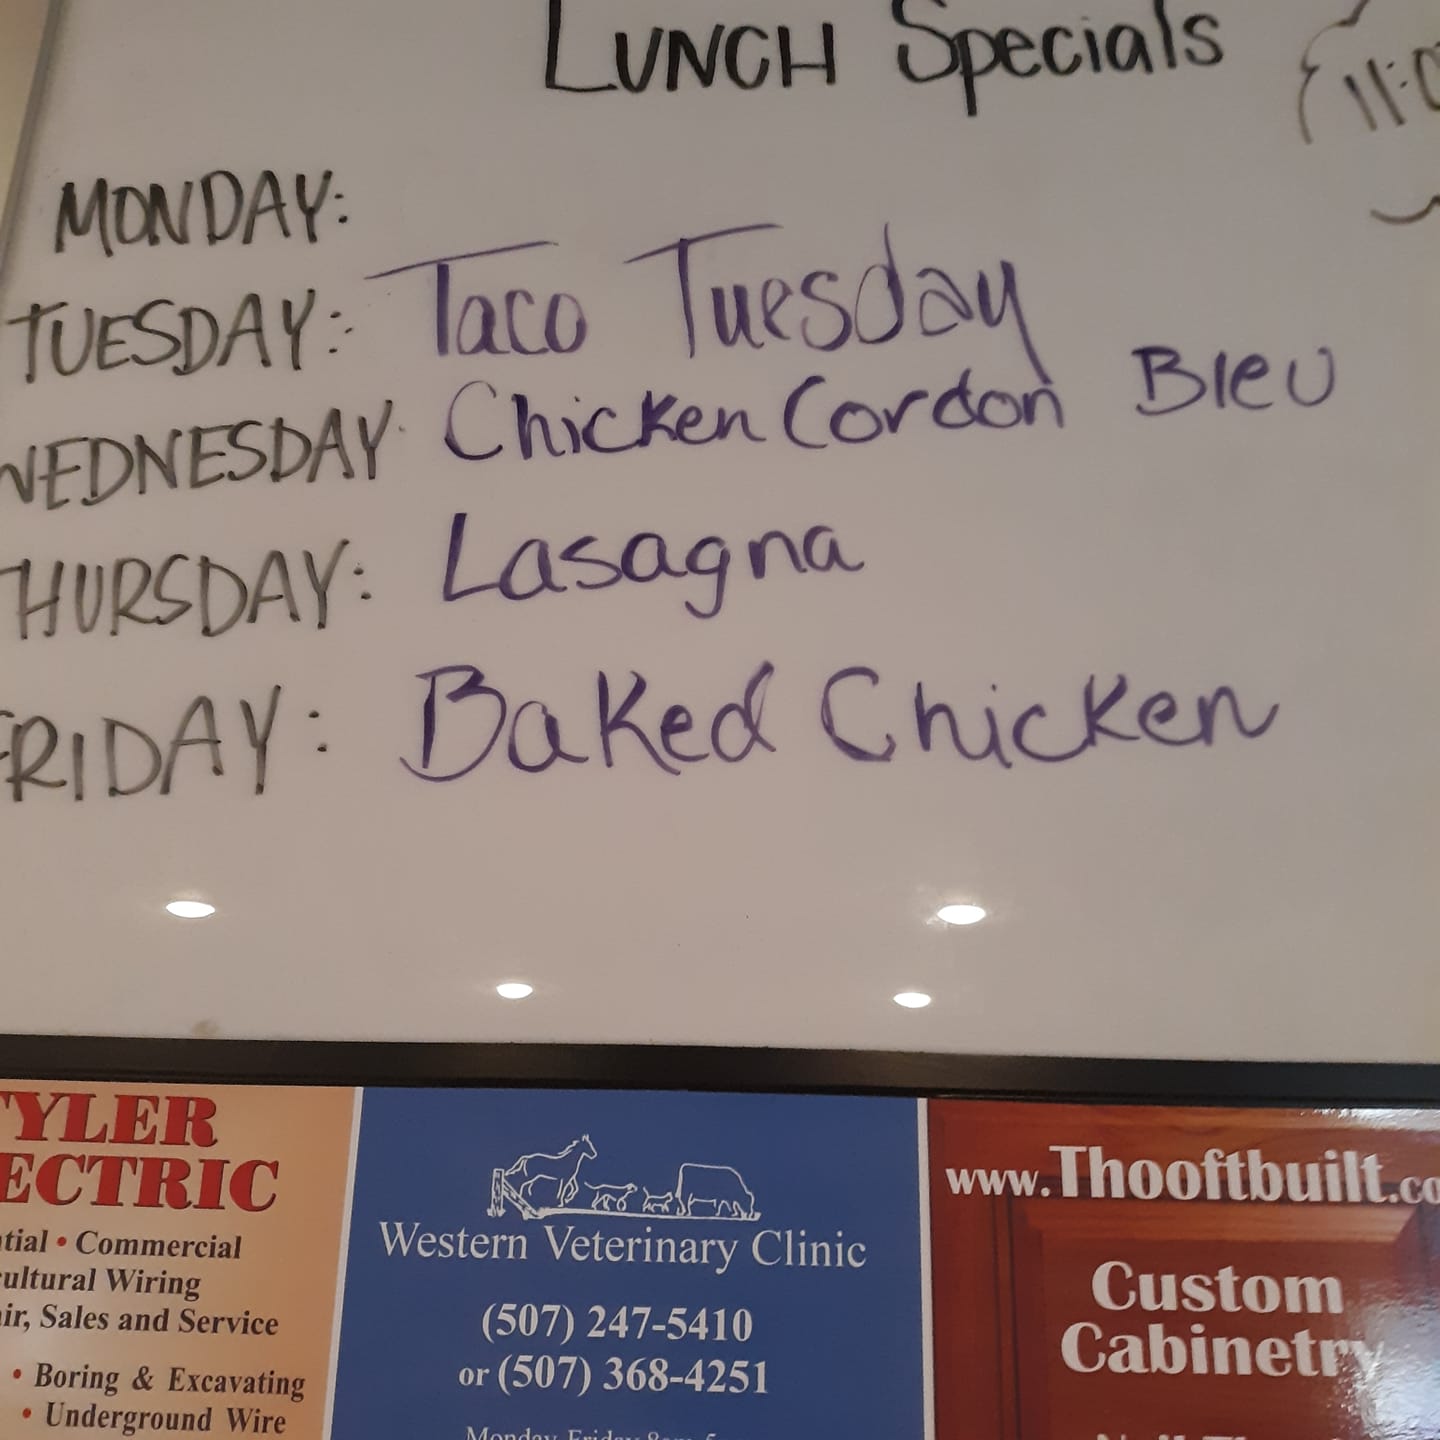 LUNCH Specials
MONDAY:
TUESDAY: Taco Tuesday
WEDNESDAY Chicken Cordon Bleu
THURSDAY: Lasagna
FRIDAY: Baked Chicken
TYLER
ECTRIC
ntial • Commercial
cultural Wiring
air, Sales and Service
• Boring & Excavating
• Underground Wire
Western Veterinary Clinic
(507) 247-5410
or (507) 368-4251
www.Thooftbuilt.co
Custom
Cabinetry